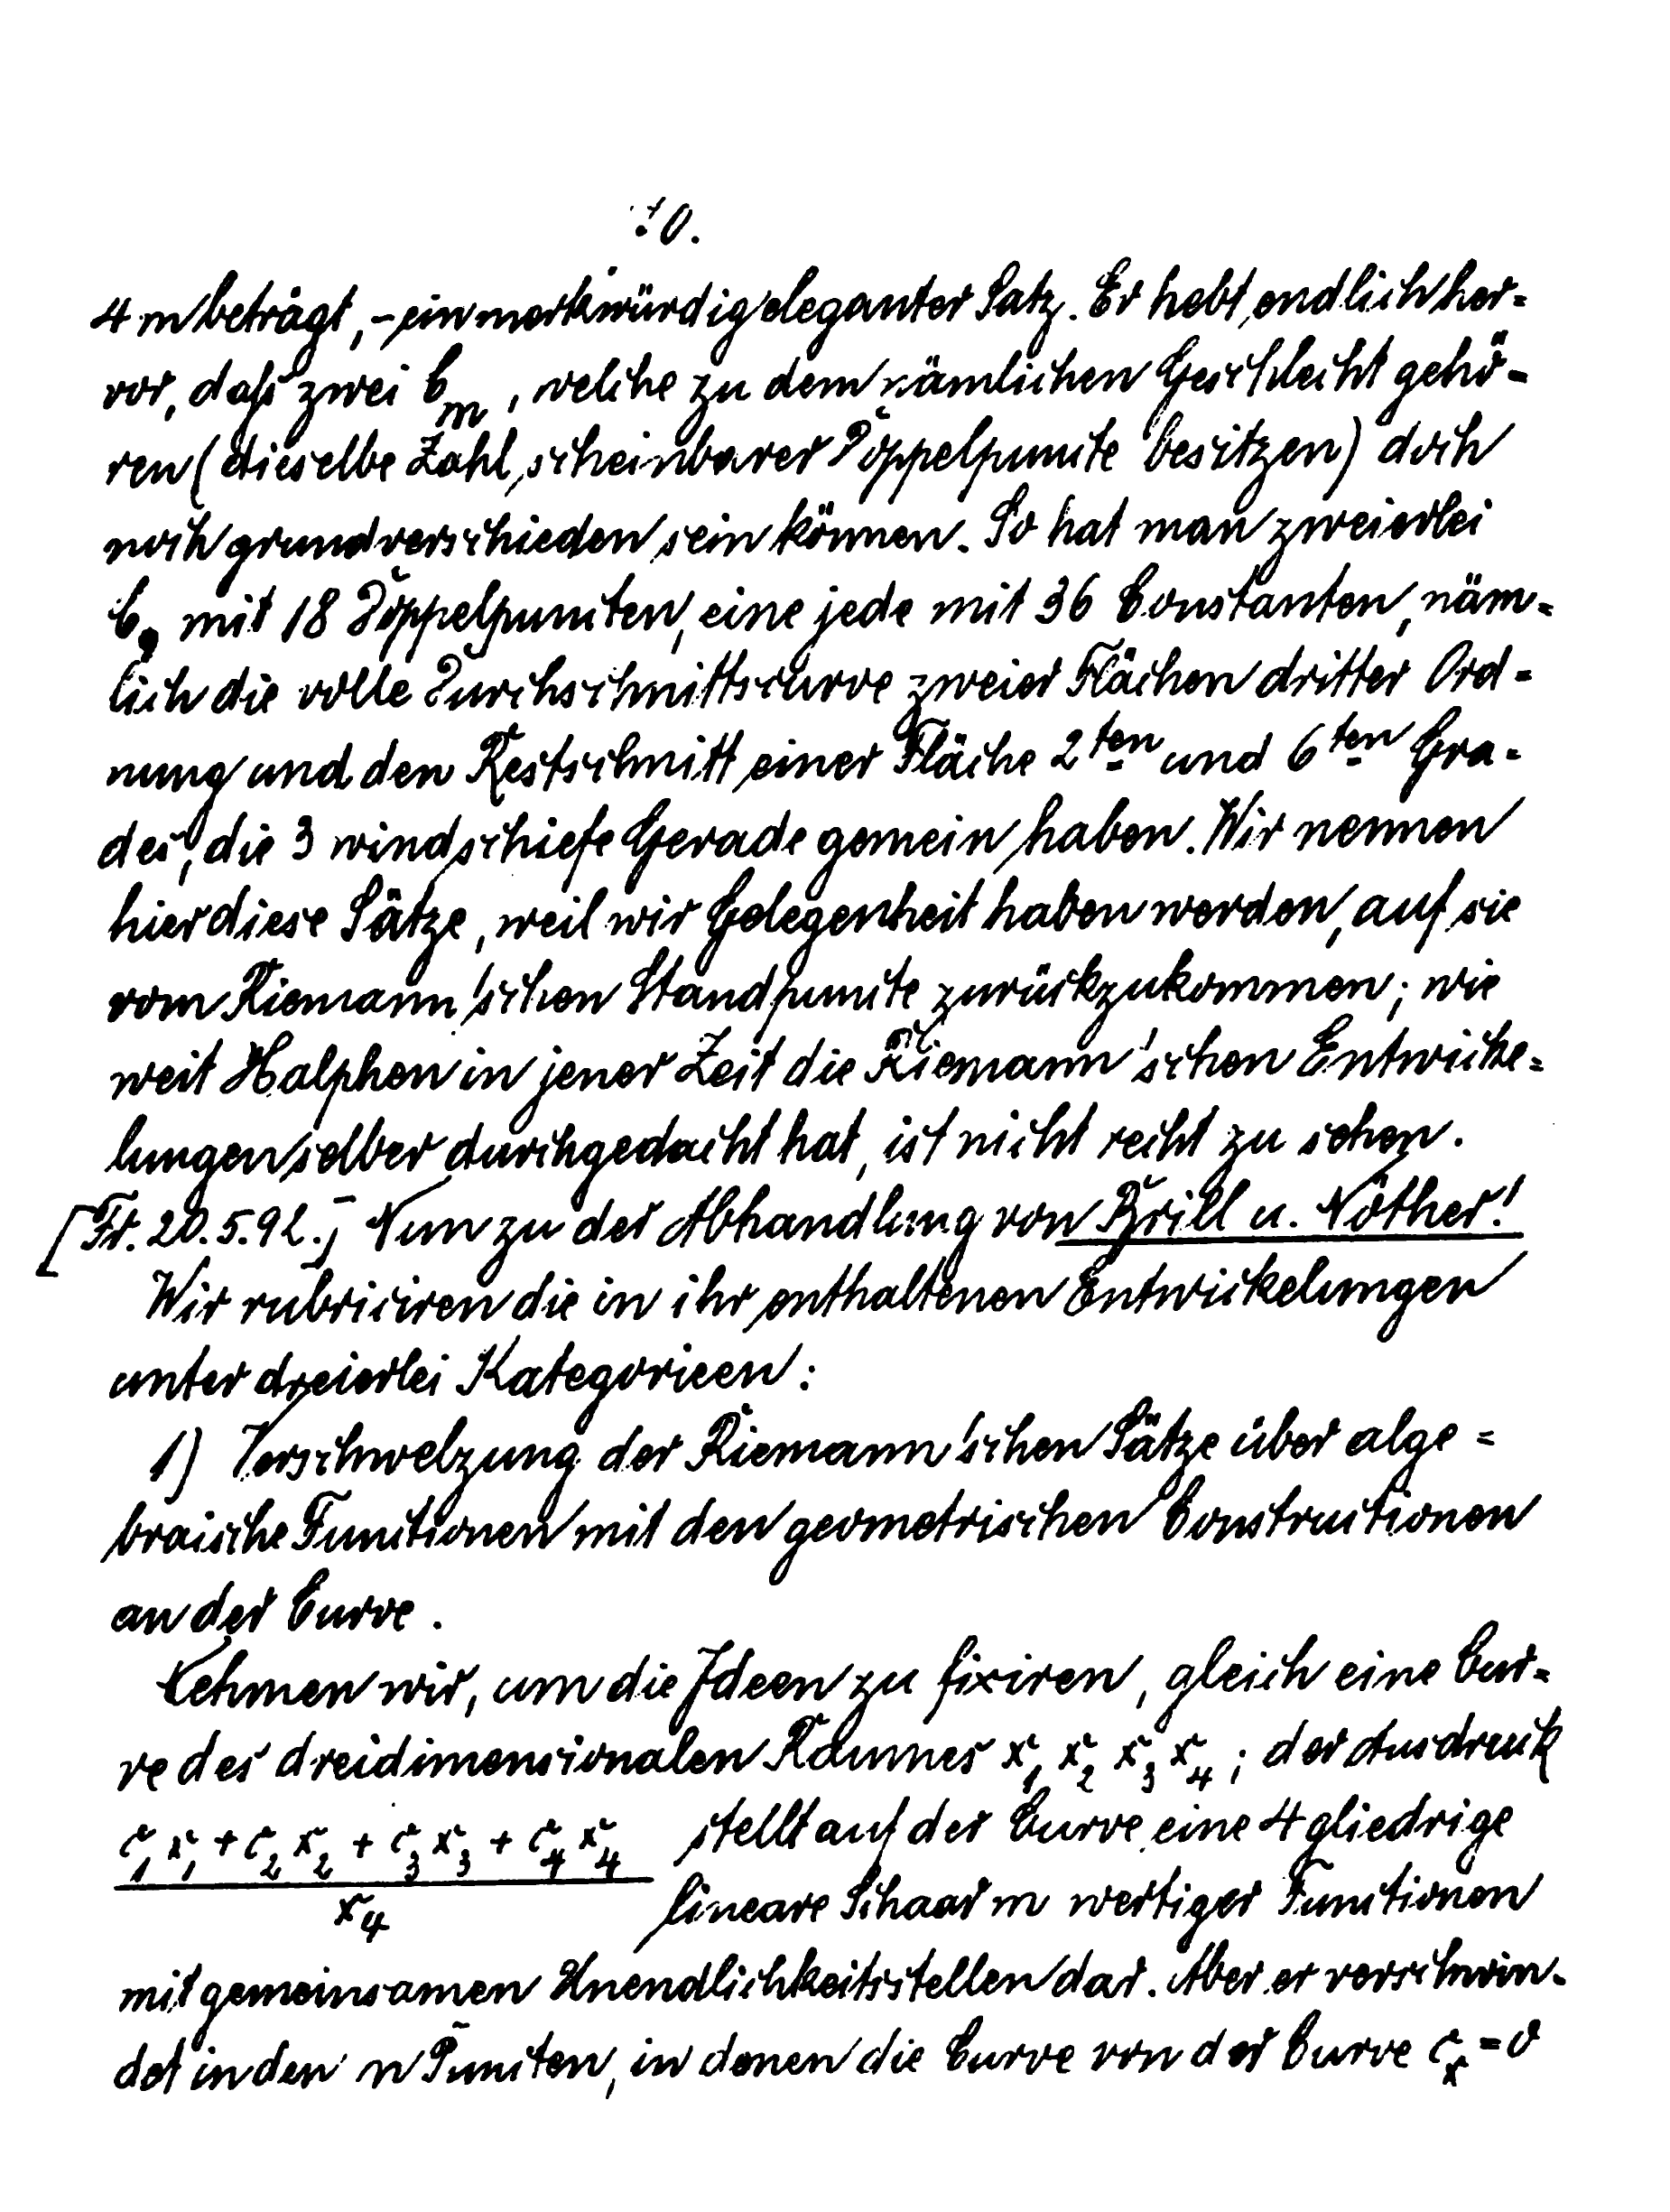 70.
4 m beträgt, - ein merkwürdig eleganter Satz. Er hebt endlich her-
vor, daß zwei C_m, welche zu dem nämlichen Geschlecht gehö-
ren (dieselbe Zahl scheinbarer Doppelpuncte besitzen) doch
noch grundverschieden sein können. So hat man zweierlei
C_9 mit 18 Doppelpuncten, eine jede mit 36 Constanten, näm-
lich die volle Durchschnittscurve zweier Flächen dritter Ord-
nung und den Restschnitt einer Fläche 2ten und 6ten Gra-
des, die 3 windschiefe Gerade gemein haben. Wir nennen
hier diese Sätze, weil wir Gelegenheit haben werden, auf sie
vom Riemann'schen Standpuncte zurückzukommen; wie
weit Halphen in jener Zeit die Riemann'schen Entwicke-
lungen selber durchgedacht hat, ist nicht recht zu sehen.
[Fr. 20.5.92.] Nun zu der Abhandlung von Brill u. Nöther!
Wir rubriciren die in ihr enthaltenen Entwickelungen
unter dreierlei Kategorieen:
1) Verschmelzung der Riemann'schen Sätze über alge-
braische Functionen mit den geometrischen Constructionen
an der Curve.
Nehmen wir, um die Ideen zu fixiren, gleich eine Cur-
ve des dreidimensionalen Raumes x_1 x_2 x_3 x_4; der Ausdruck
c_1 x_1 + c_2 x_2 + c_3 x_3 + c_4 x_4 stellt auf der Curve eine 4 gliedrige
x_4 lineare Schaar m wertiger Functionen
mit gemeinsamen Unendlichkeitsstellen dar. Aber er verschwin-
det in den n Puncten, in denen die Curve von der Curve c_x = 0